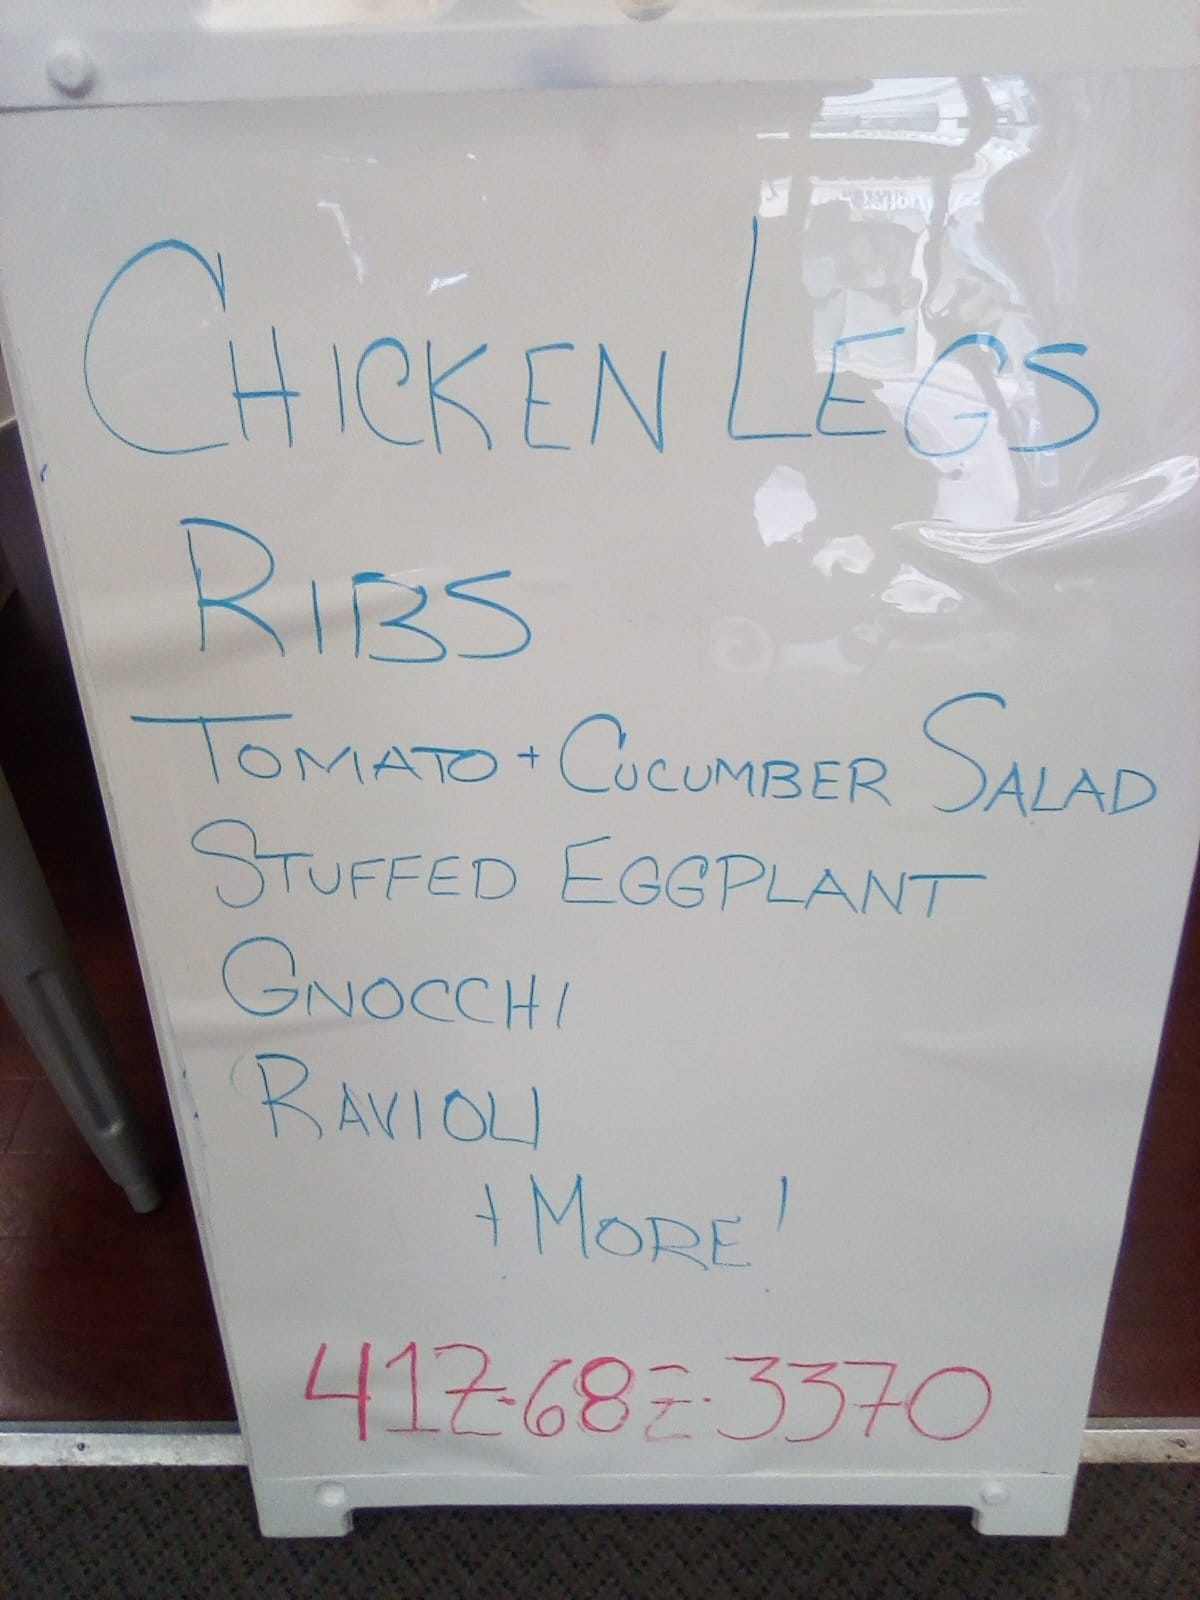 CHICKEN LEGS
RIBS
TOMATO + CUCUMBER SALAD
STUFFED EGGPLANT
GNOCCHI
RAVIOLI
+ MORE!
412-682-3370